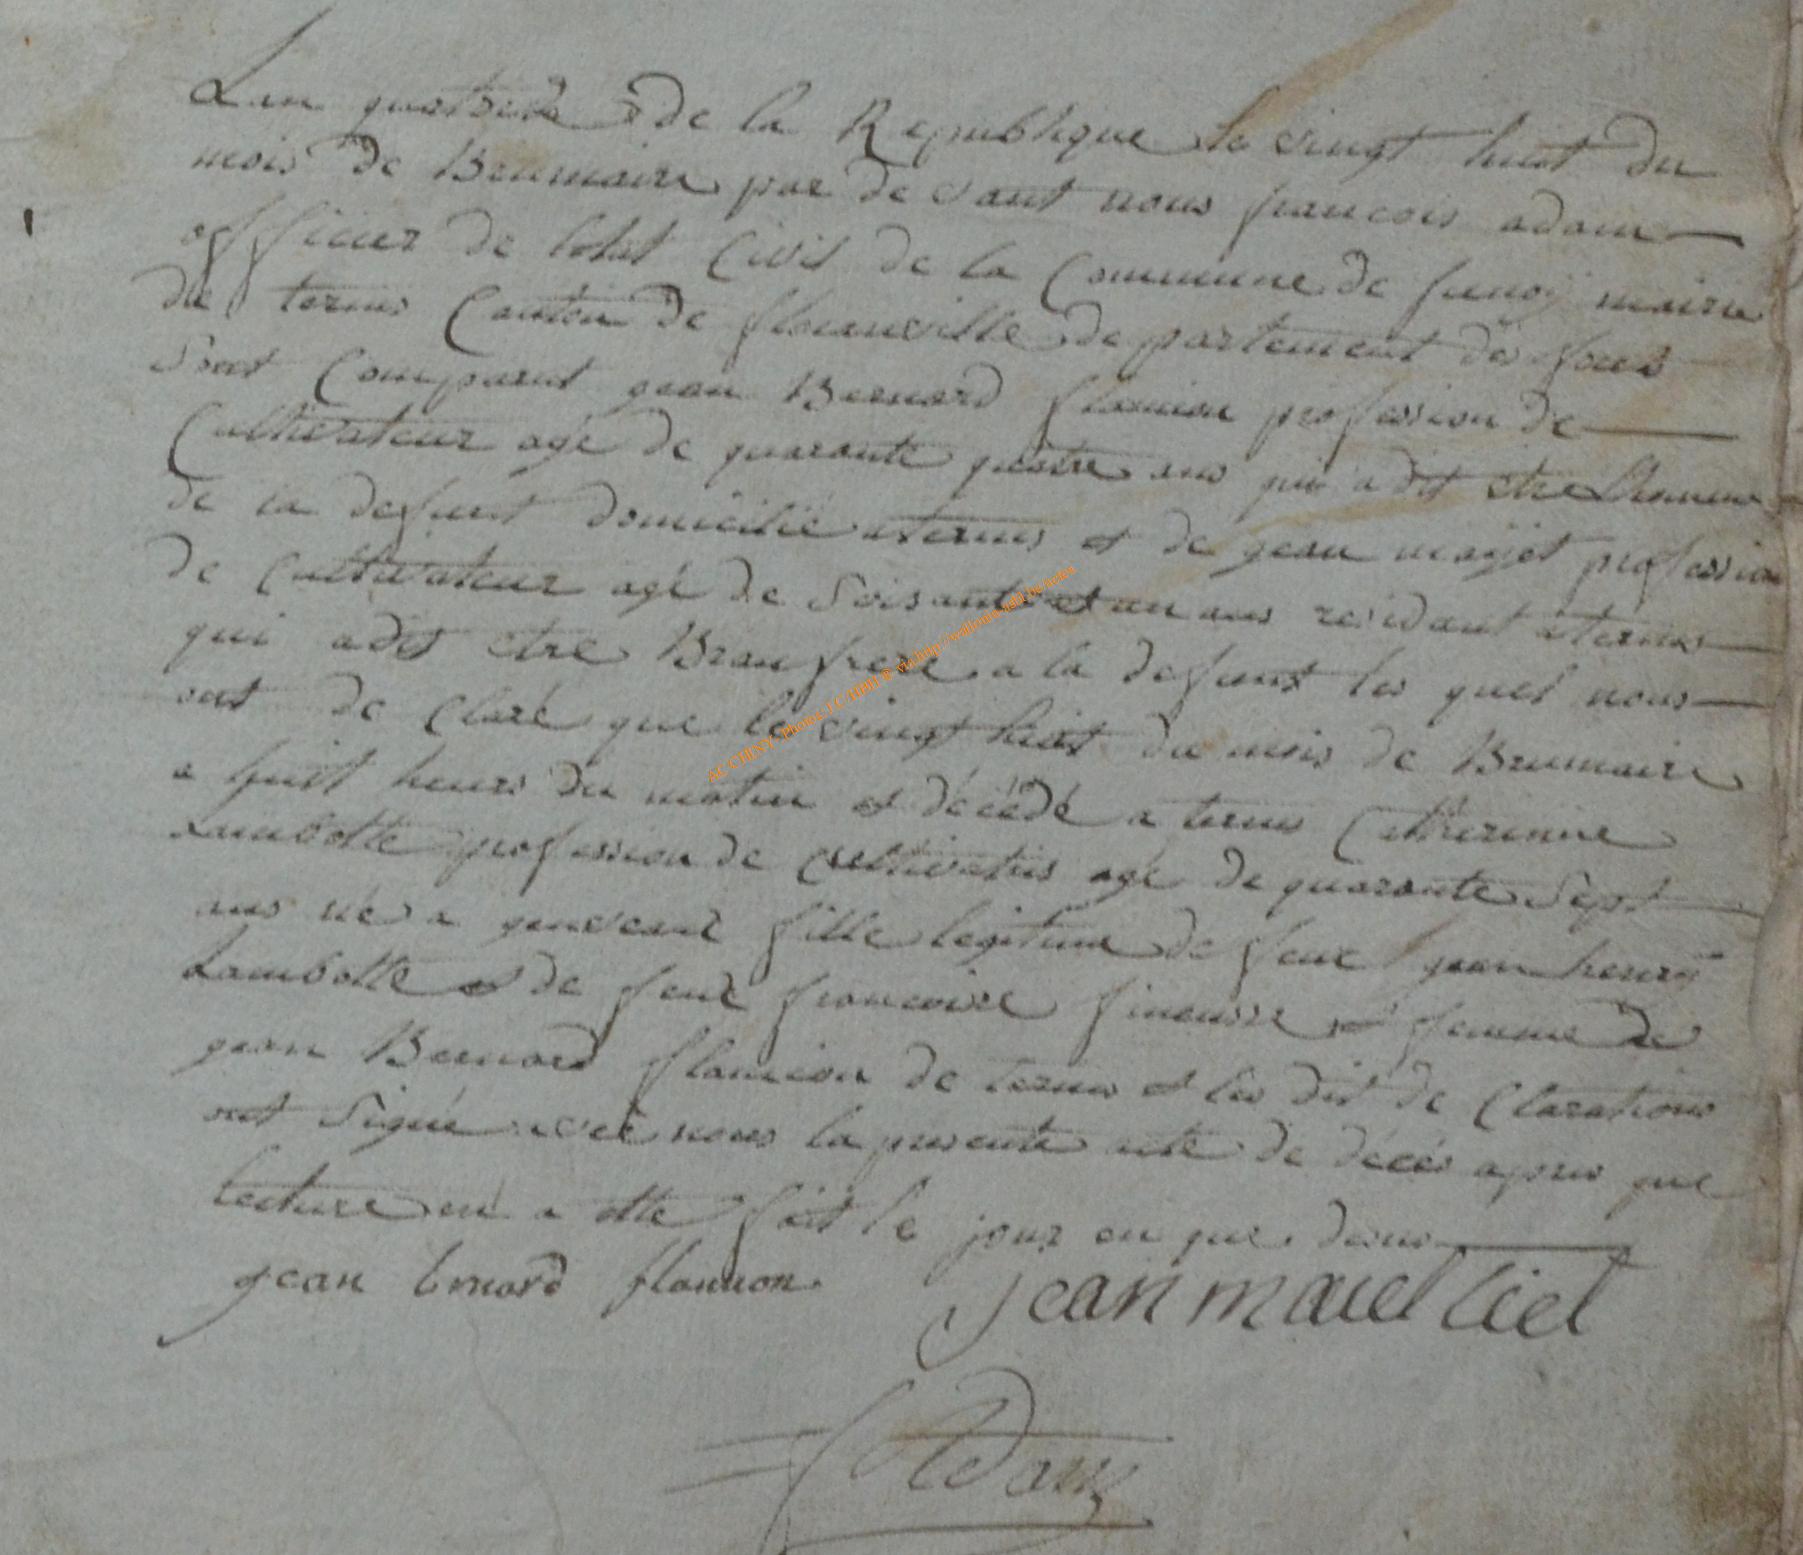 Lan quatorze de la Republique le vingt huit du
mois de Brumaire par de vant nous francois adam
officier de letat Civil de la Commune de Suxoy mairie
de termes Canton de florenville departement des forets
Sont Comparut jean Bernard flamion profession de
Cultivateur agé de quarante quatre ans qui a dit etre
de la defunt domicilié a termes et de jean profession
de Cultivateur agé de Soisante et un ans residant a termes
qui a dit etre Beau frere a la defunt les quel nous
ont de Claré que le vingt huit du mois de Brumaire
a huit heurs du matin et décédé a termes Catherinne
Lambotte profession de Cultivatris agé de quarante Sept
ans né a fille legitime de feue jean henrÿ
Lambotte et de feue francoise femme de
jean Bernard flamion de termes et les dit de Clarations
ont Signé avec nous la presente acte de décés apres que
lecture en a etté fait le jour en que desus
jean brnard flamion jean maiel liel
f Adam
AC CHINY - Photos J.C HBH ® via http://wallonie-gdd.be/actes